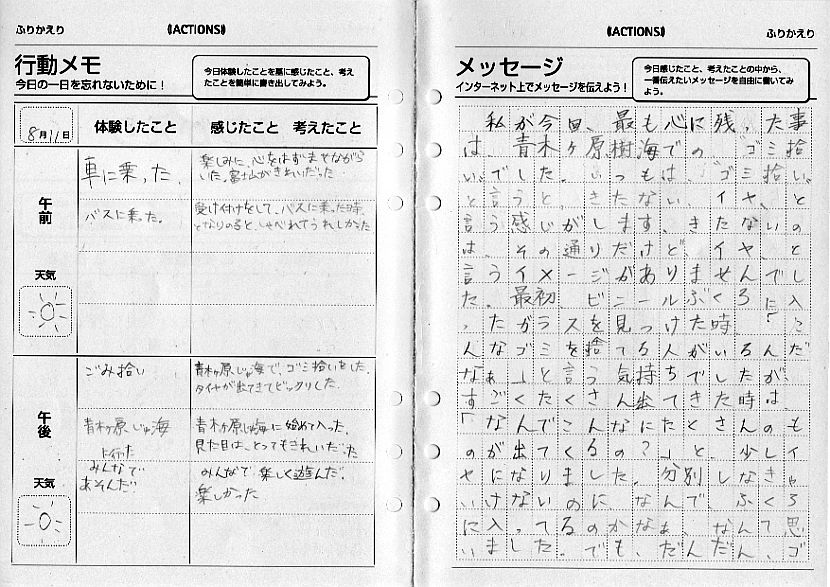 ふりかえり
《ACTIONS》
行動メモ
今日の一日を忘れないために！
今日体験したことを基に感じたこと、考え
たことを簡単に書き出してみよう。
8月11日
体験したこと
感じたこと 考えたこと
午前
天気
車に乗った。
楽しみに、心をはずませながら
いた。富士山がきれいだった
バスに乗った。
受け付けをして、バスに乗った時、
となりの子と、しゃべれてうれしかった
午後
天気
ごみ拾い
青木ヶ原じゅ海で、ゴミ拾いをした。
タイヤが出てきてビックリした。
青木ヶ原じゅ海
に行った
青木ヶ原じゅ海に始めて入った。
見た目は、とってもきれいだった
みんなで
あそんだ
みんなで楽しく遊んだ。
楽しかった
《ACTIONS》
ふりかえり
メッセージ
インターネット上でメッセージを伝えよう！
今日感じたこと、考えたことの中から、
一番伝えたいメッセージを自由に書いてみ
よう。
私が今回、最も心に残った事
は、青木ヶ原樹海でのゴミ拾
いでした。いつもは、ゴミ拾い
と言うと、きたない、イヤ、と
言う感じがします。きたないの
は、その通りだけど、イヤ、と
言うイメージがありませんでし
た。最初、ビニールぶくろに入
ったガラスを見つけた時「こ
んなゴミを捨てる人がいるんだ
なぁ」と言う気持ちでしたが、
すごくたくさん出てきた時は、
「なんでこんなにたくさんのも
のが出てくるの？」と、少しイ
ヤになりました。分別しなきゃ
いけないのに、なんで、ふくろ
に入ってるのかなぁ なんて思
いました。でも、だんだん、ゴ